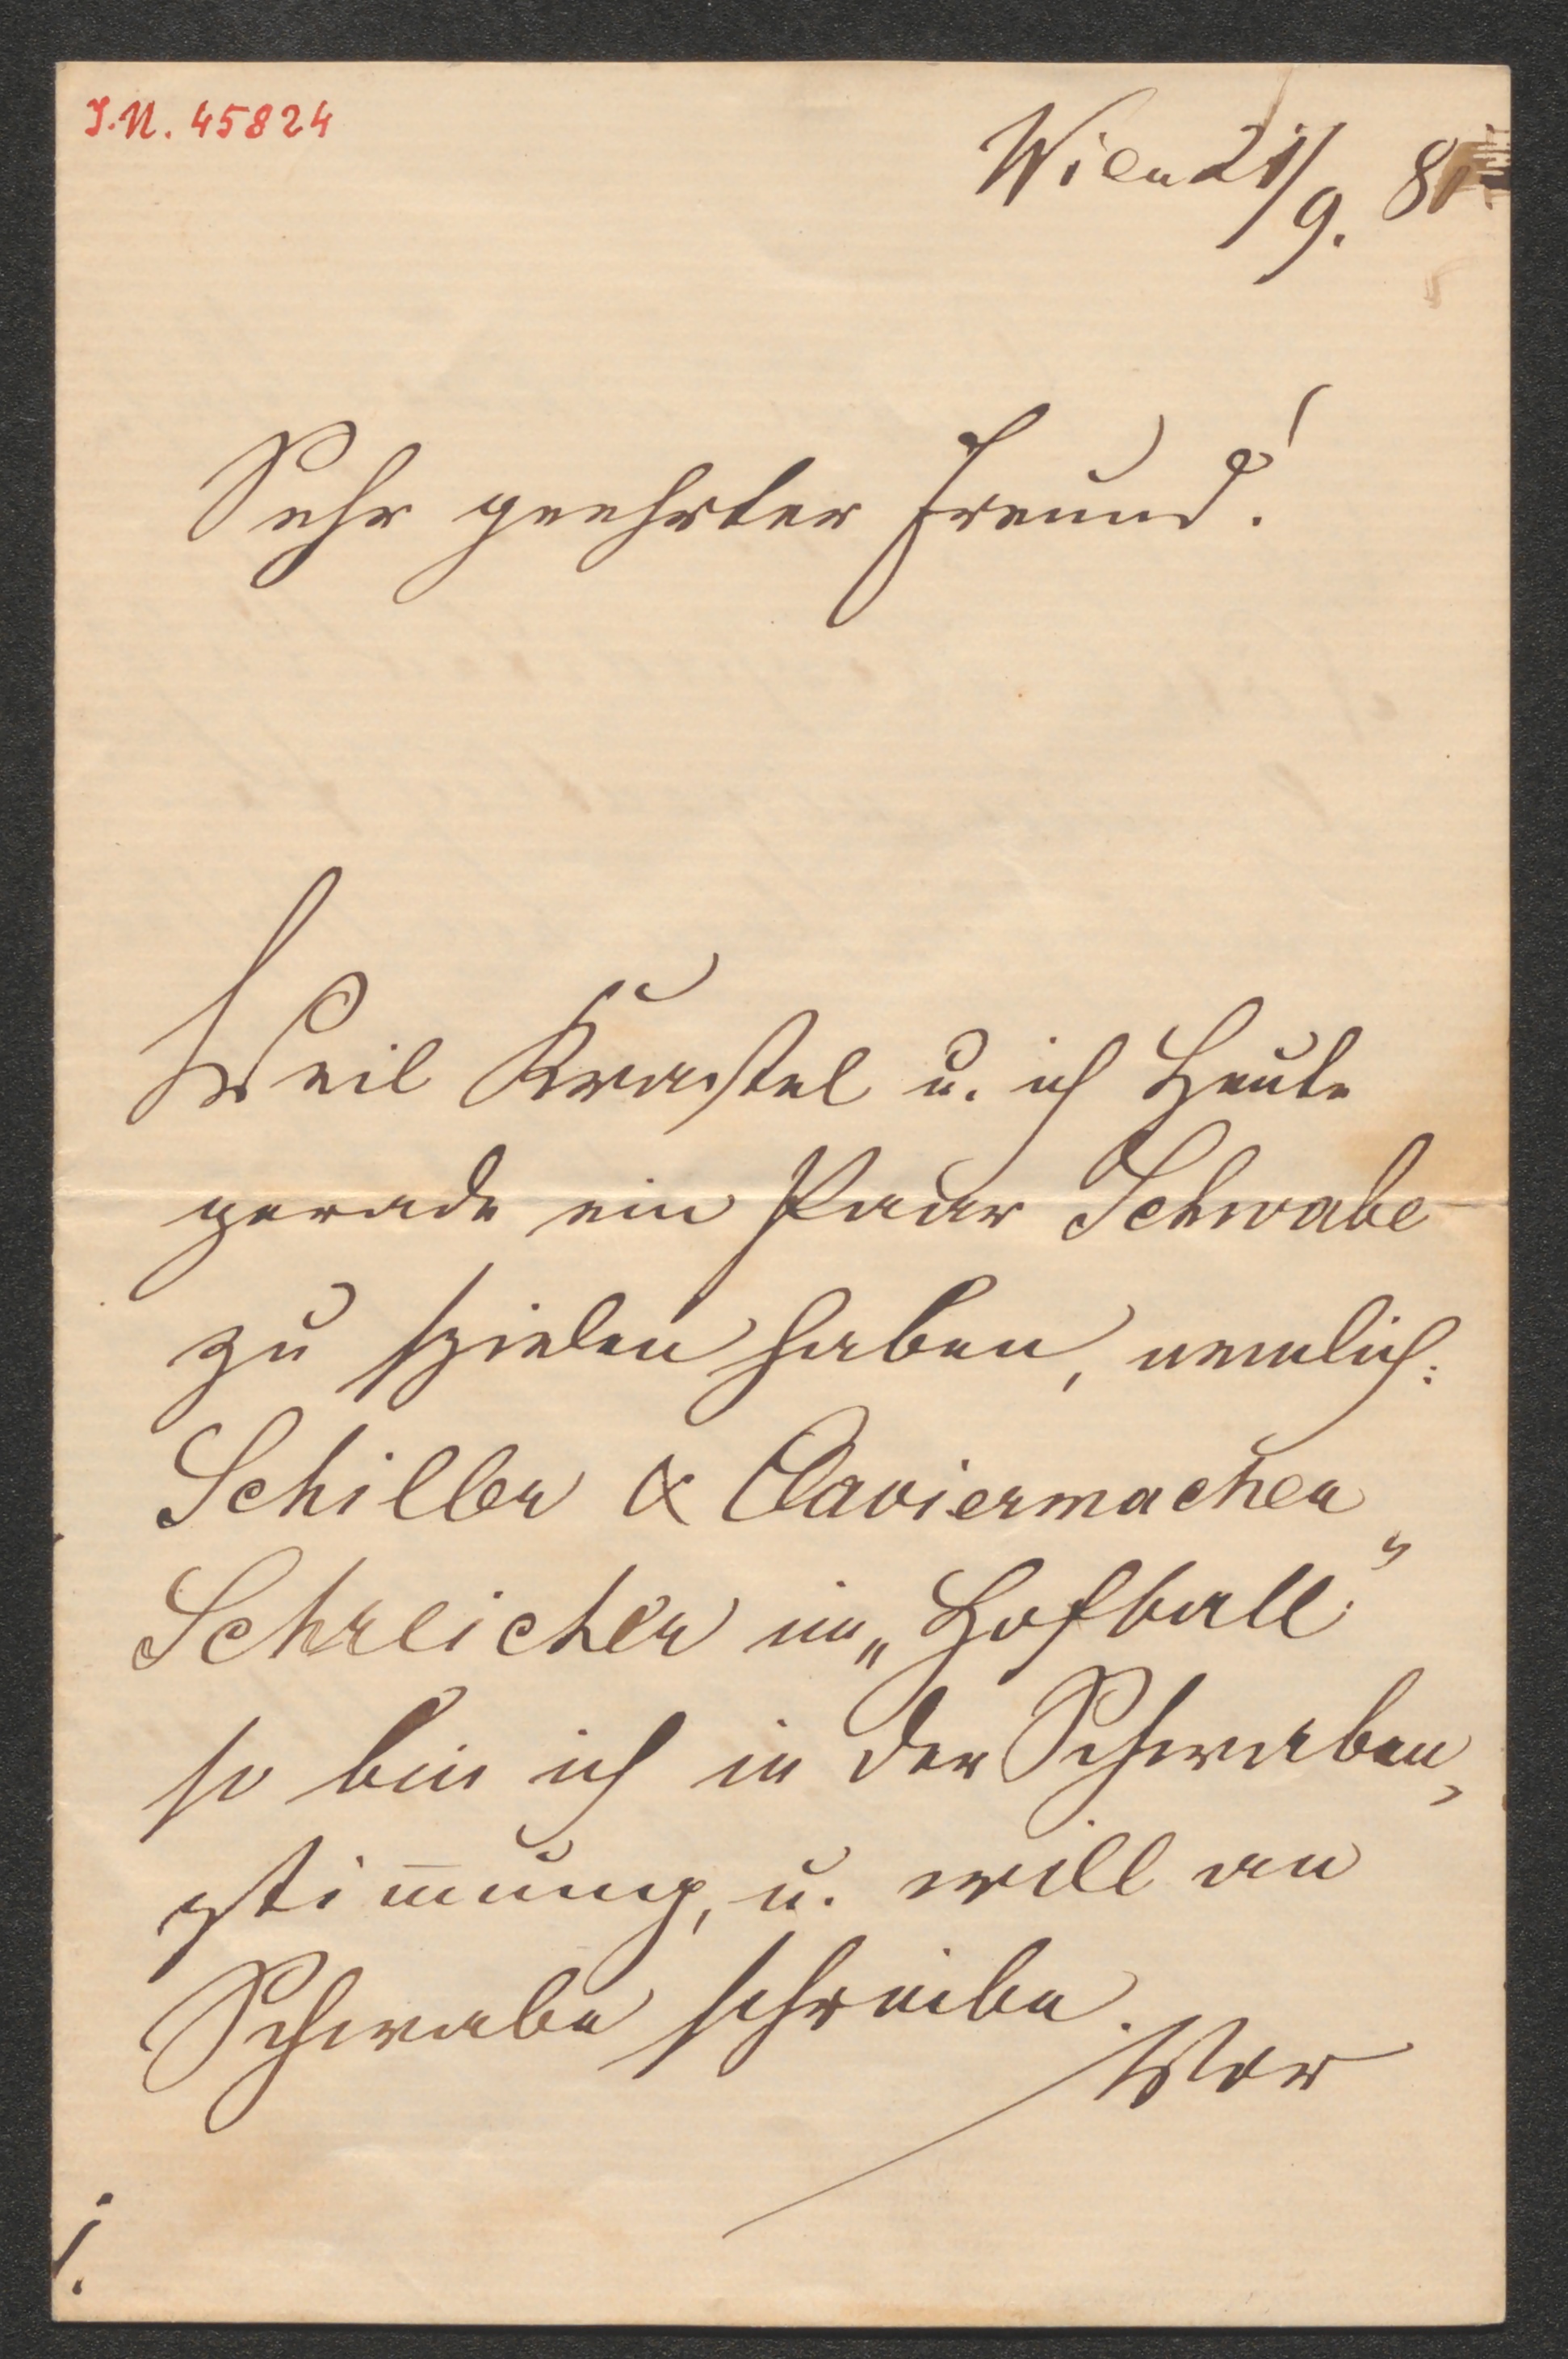 I.N. 45824
Wien 21/9. 80
Sehr geehrter Freund!
Weil Krastel u. ich Heute
gerade ein Paar Schwabe
zu spielen haben, nemlich:
Schiller & Claviermacher
Schreicher im „Hofball“
so bin ich in der Schwaben,
stim̅ung, u. will an
Schwabe schreibe.
Vor
1.